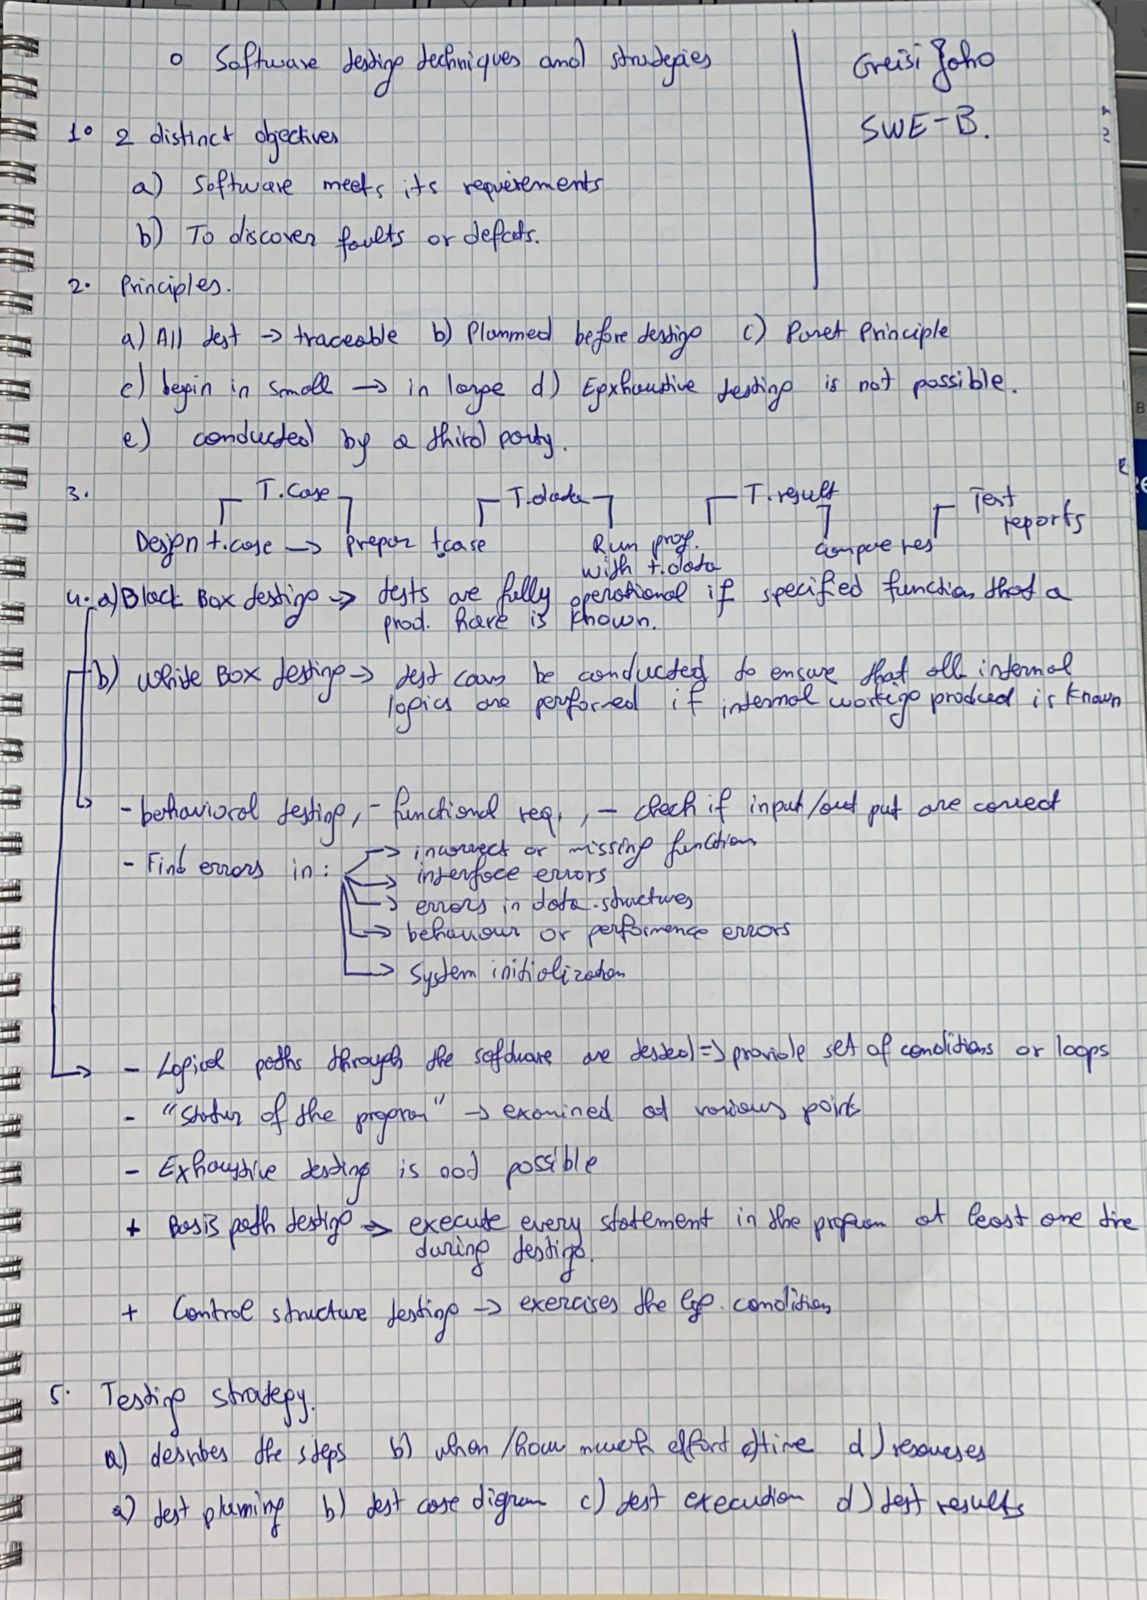 o Software testing techniques and strategies
Greisi Joho
SWE-B.
1. 2 distinct objectives
a) Software meets its requirements
b) To discover faults or defects.
2. Principles.
a) All test → traceable b) Planned before testing c) Paret Principle
c) begin in small → in large d) Epxhaustive testing is not possible.
e) conducted by a third party.
3. T.Case T.data T.result Test reports
Design t.case → prepar t.case Run prog. with t.data compare res
4. a) Black Box testing → tests are fully operational if specified function that a
prod. have is known.
b) White Box testing → test can be conducted to ensure that all internal
logics are performed if internal produced is known
- behavioral testing, - functional req., - check if input/out put are correct
- Find errors in: → incorrect or missing function
→ interface errors
→ errors in data.structures
→ behaviour or performence errors
→ system initialization
- Logical paths through the software are tested ⇒ provide set of conditions or loops
- "Status of the program" → examined at various point
- Exhaustive testing is possible
+ Basis path testing → execute every statement in the program at least one time
during testing.
+ Control structure testing → exercises the condition
5. Testing strategy.
a) desribes the steps b) when/how much effort time d) resourses
a) test planning b) test case digram c) test execution d) test results